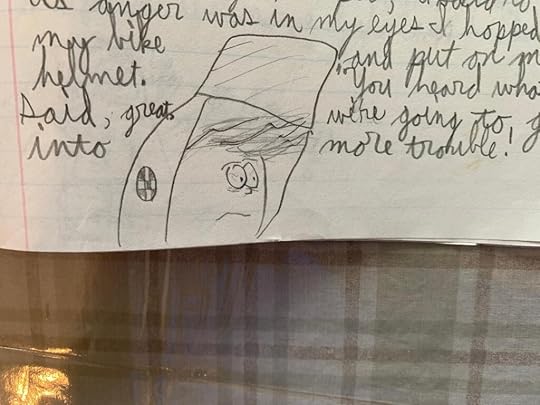 anger was in my eyes I hopped
my bike and put on m
helmet. "You heard what
Said, great we're going to g
into more trouble!